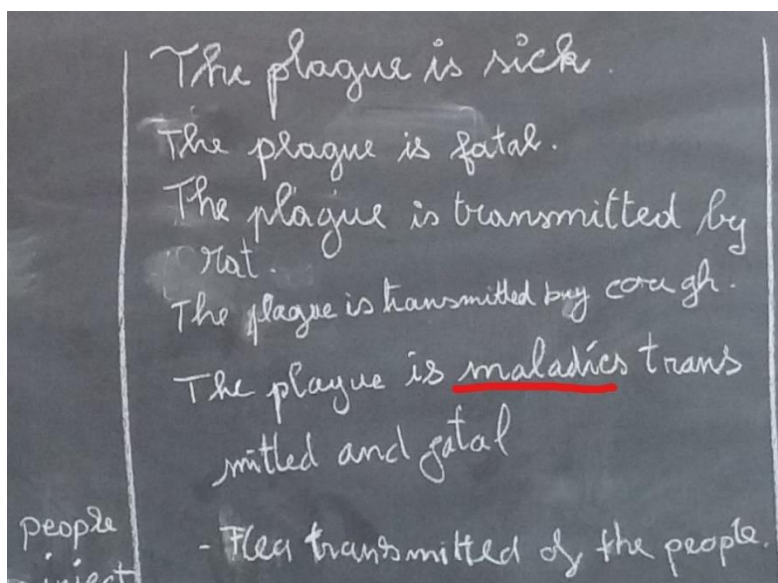 The plague is sick.
The plague is fatal.
The plague is transmitted by
rat.
The plague is transmitted buy cough.
The plague is maladies trans
mitled and gatal
people
- Flea transmitted of the people.
inject